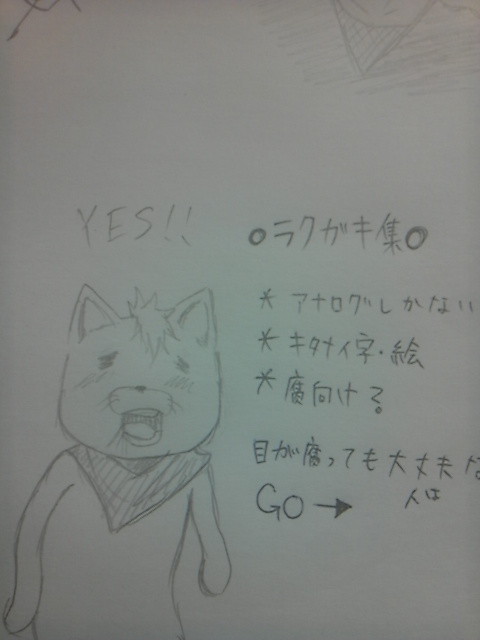 YES!!
○ラクガキ集○
* アナログしかない
* キタナイ字・絵
* 腐向け?
目が腐っても大丈夫な
人は
GO→